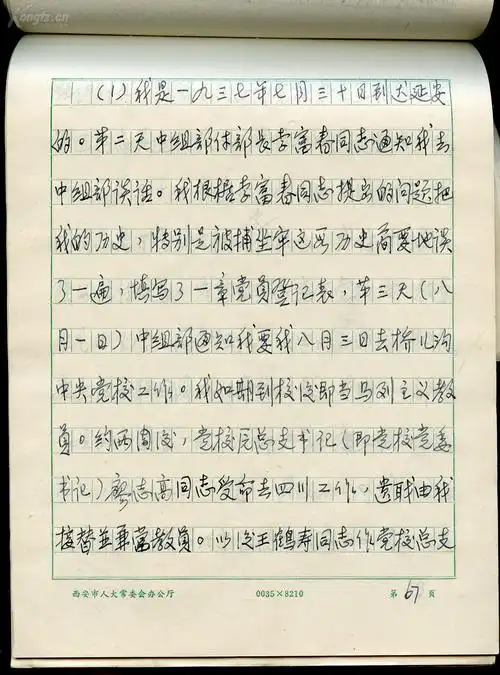 kongfz.cn
(1)我是一九三七年七月三十日到达延安
的。第二天中组部付部长李富春同志通知我去
中组部谈话。我根据李富春同志提出的问题把
我的历史，特别是被捕坐牢这段历史简要地谈
了一遍，填写了一章党员登记表，第三天（八
月一日）中组部通知我要我八月三日去桥儿沟
中央党校工作。我如期到校后即当马列主义教
员。约两周后，党校原总支书记（即党校党委
书记）廖志高同志受命去四川工作，遗职由我
接替並兼当教员。以后王鹤寿同志作党校总支
西安市人大常委会办公厅 0035×8210 第 67 页